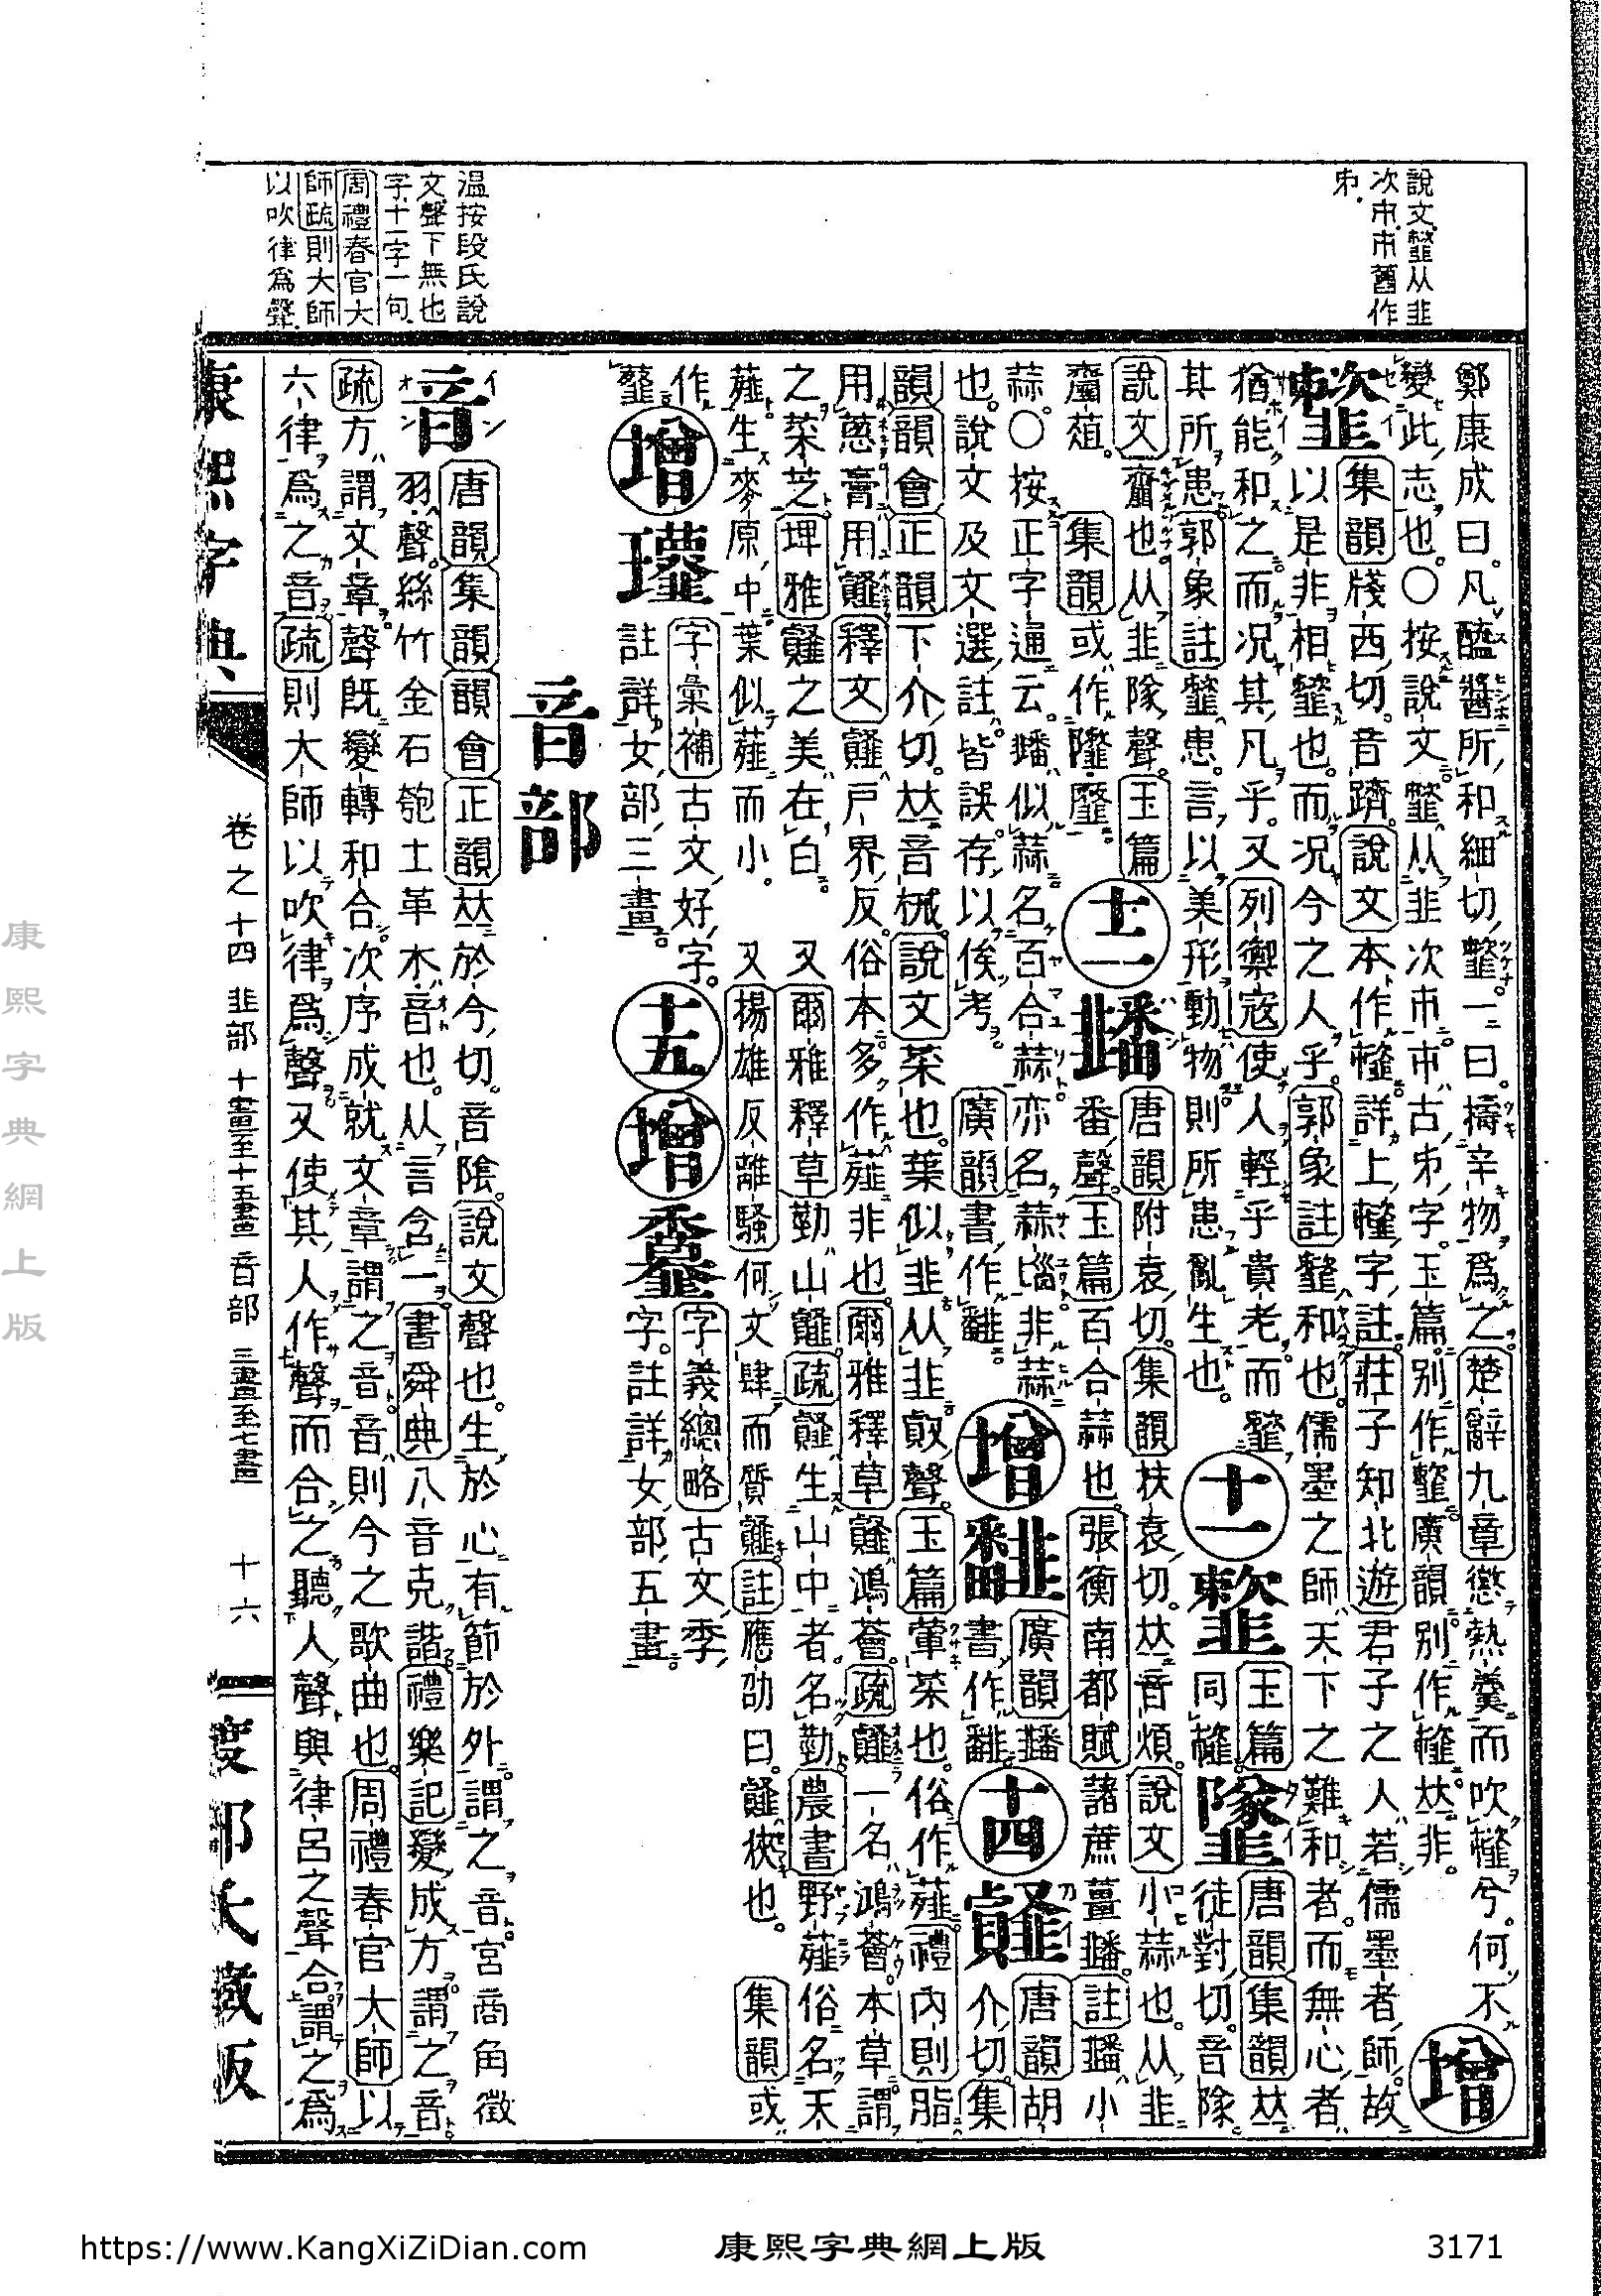 說文韲从韭
次市市舊作
温按段氏說
文聲下無也
字十一字一句
周禮春官大
師疏則大師
以吹律爲聲
鄭康成曰凡醯醬所和細切韲一曰擣辛物爲之楚辭九章懲熱羹而吹韲兮何不
變此志也〇按說文韲从韭次市市古字玉篇別作韲廣韻別作韲𠀤非 增
集韻牋西切音躋說文本作韲詳上韲字註莊子知北遊君子之人若儒墨者師故
以是非相韲也而况今之人乎郭象註韲和也儒墨之師天下之難和者而無心者
猶能和之而况其凡乎又列禦寇使人輕乎貴老而韲
其所患郭象註韲患言以美形動物則所患亂生也 十一 玉篇同韲 䪤 唐韻集韻𠀤徒對切音隊
說文韲也从韭隊聲玉篇韲葅集韻或作
十二 䪛 唐韻附袁切集韻扶袁切𠀤音煩說文小蒜也从韭
番聲玉篇百合蒜也張衡南都賦藷蔗薑䪛註䪛小
蒜〇按正字通云䪛似蒜名百合蒜亦名蒜非蒜
也說文及文選註皆誤存以俟考 廣韻書作 增 廣韻䪛書作 十四 䪥 唐韻胡介切集
韻韻會正韻下介切𠀤音械說文菜也葉似韭从韭𣦼聲玉篇葷菜也俗作薤禮內則脂
用蔥膏用䪥釋文䪥戸界反俗本多作薤非也爾雅釋草䪥鴻薈疏䪥一名鴻薈本草謂
之菜芝埤雅䪥之美在白 又爾雅釋草葝山䪥疏䪥生山中者名葝農書野薤俗名天
薤生麥原中葉似薤而小 又揚雄反離騷何文肆而質䪥註應劭曰䪥狹也 集韻或
作
增 字彙補古文好字註詳女部三畫
十五 增 字義總略古文季字註詳女部五畫
音部
音 唐韻集韻韻會正韻𠀤於今切音陰說文聲也生於心有節於外謂之音宮商角徵
羽聲絲竹金石匏土革木音也从言含一書舜典八音克諧禮樂記變成方謂之音
疏方謂文章聲旣變轉和合次序成就文章謂之音音則今之歌曲也周禮春官大師以
六律爲之音疏則大師以吹律爲聲又使其人作聲而合之聽人聲與律呂之聲合謂之爲
康熙字典
卷之十四 韭部 十一畫至十五畫 音部 三畫至七畫
十六
渡部氏藏版
康熙字典網上版
https://www.KangXiZiDian.com
康熙字典網上版
3171